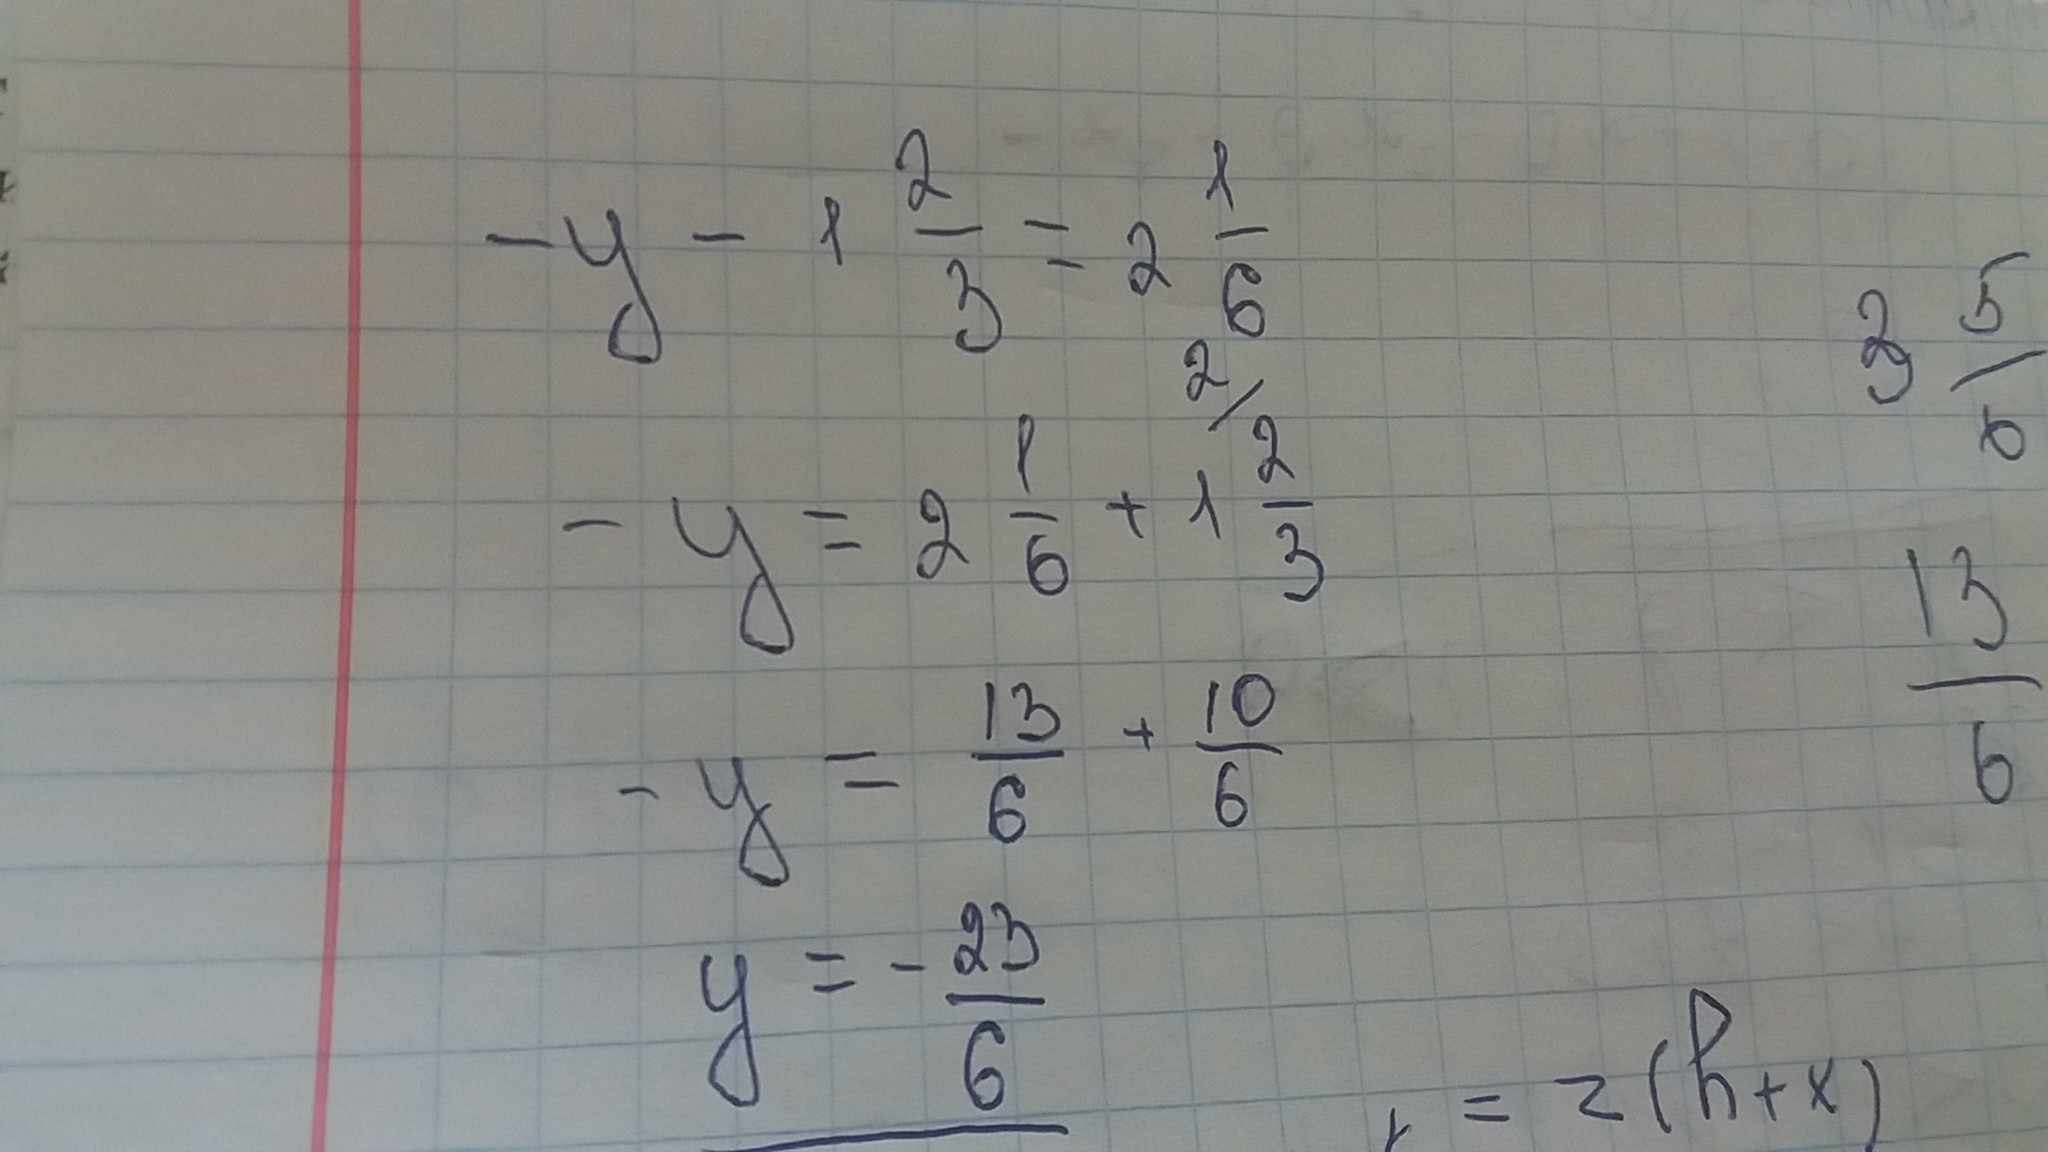 -y - 1 2/3 = 2 1/6
2/
-y = 2 1/6 + 1 2/3
-y = 13/6 + 10/6
y = - 23/6
5/6
13/6
= 2(h+x)